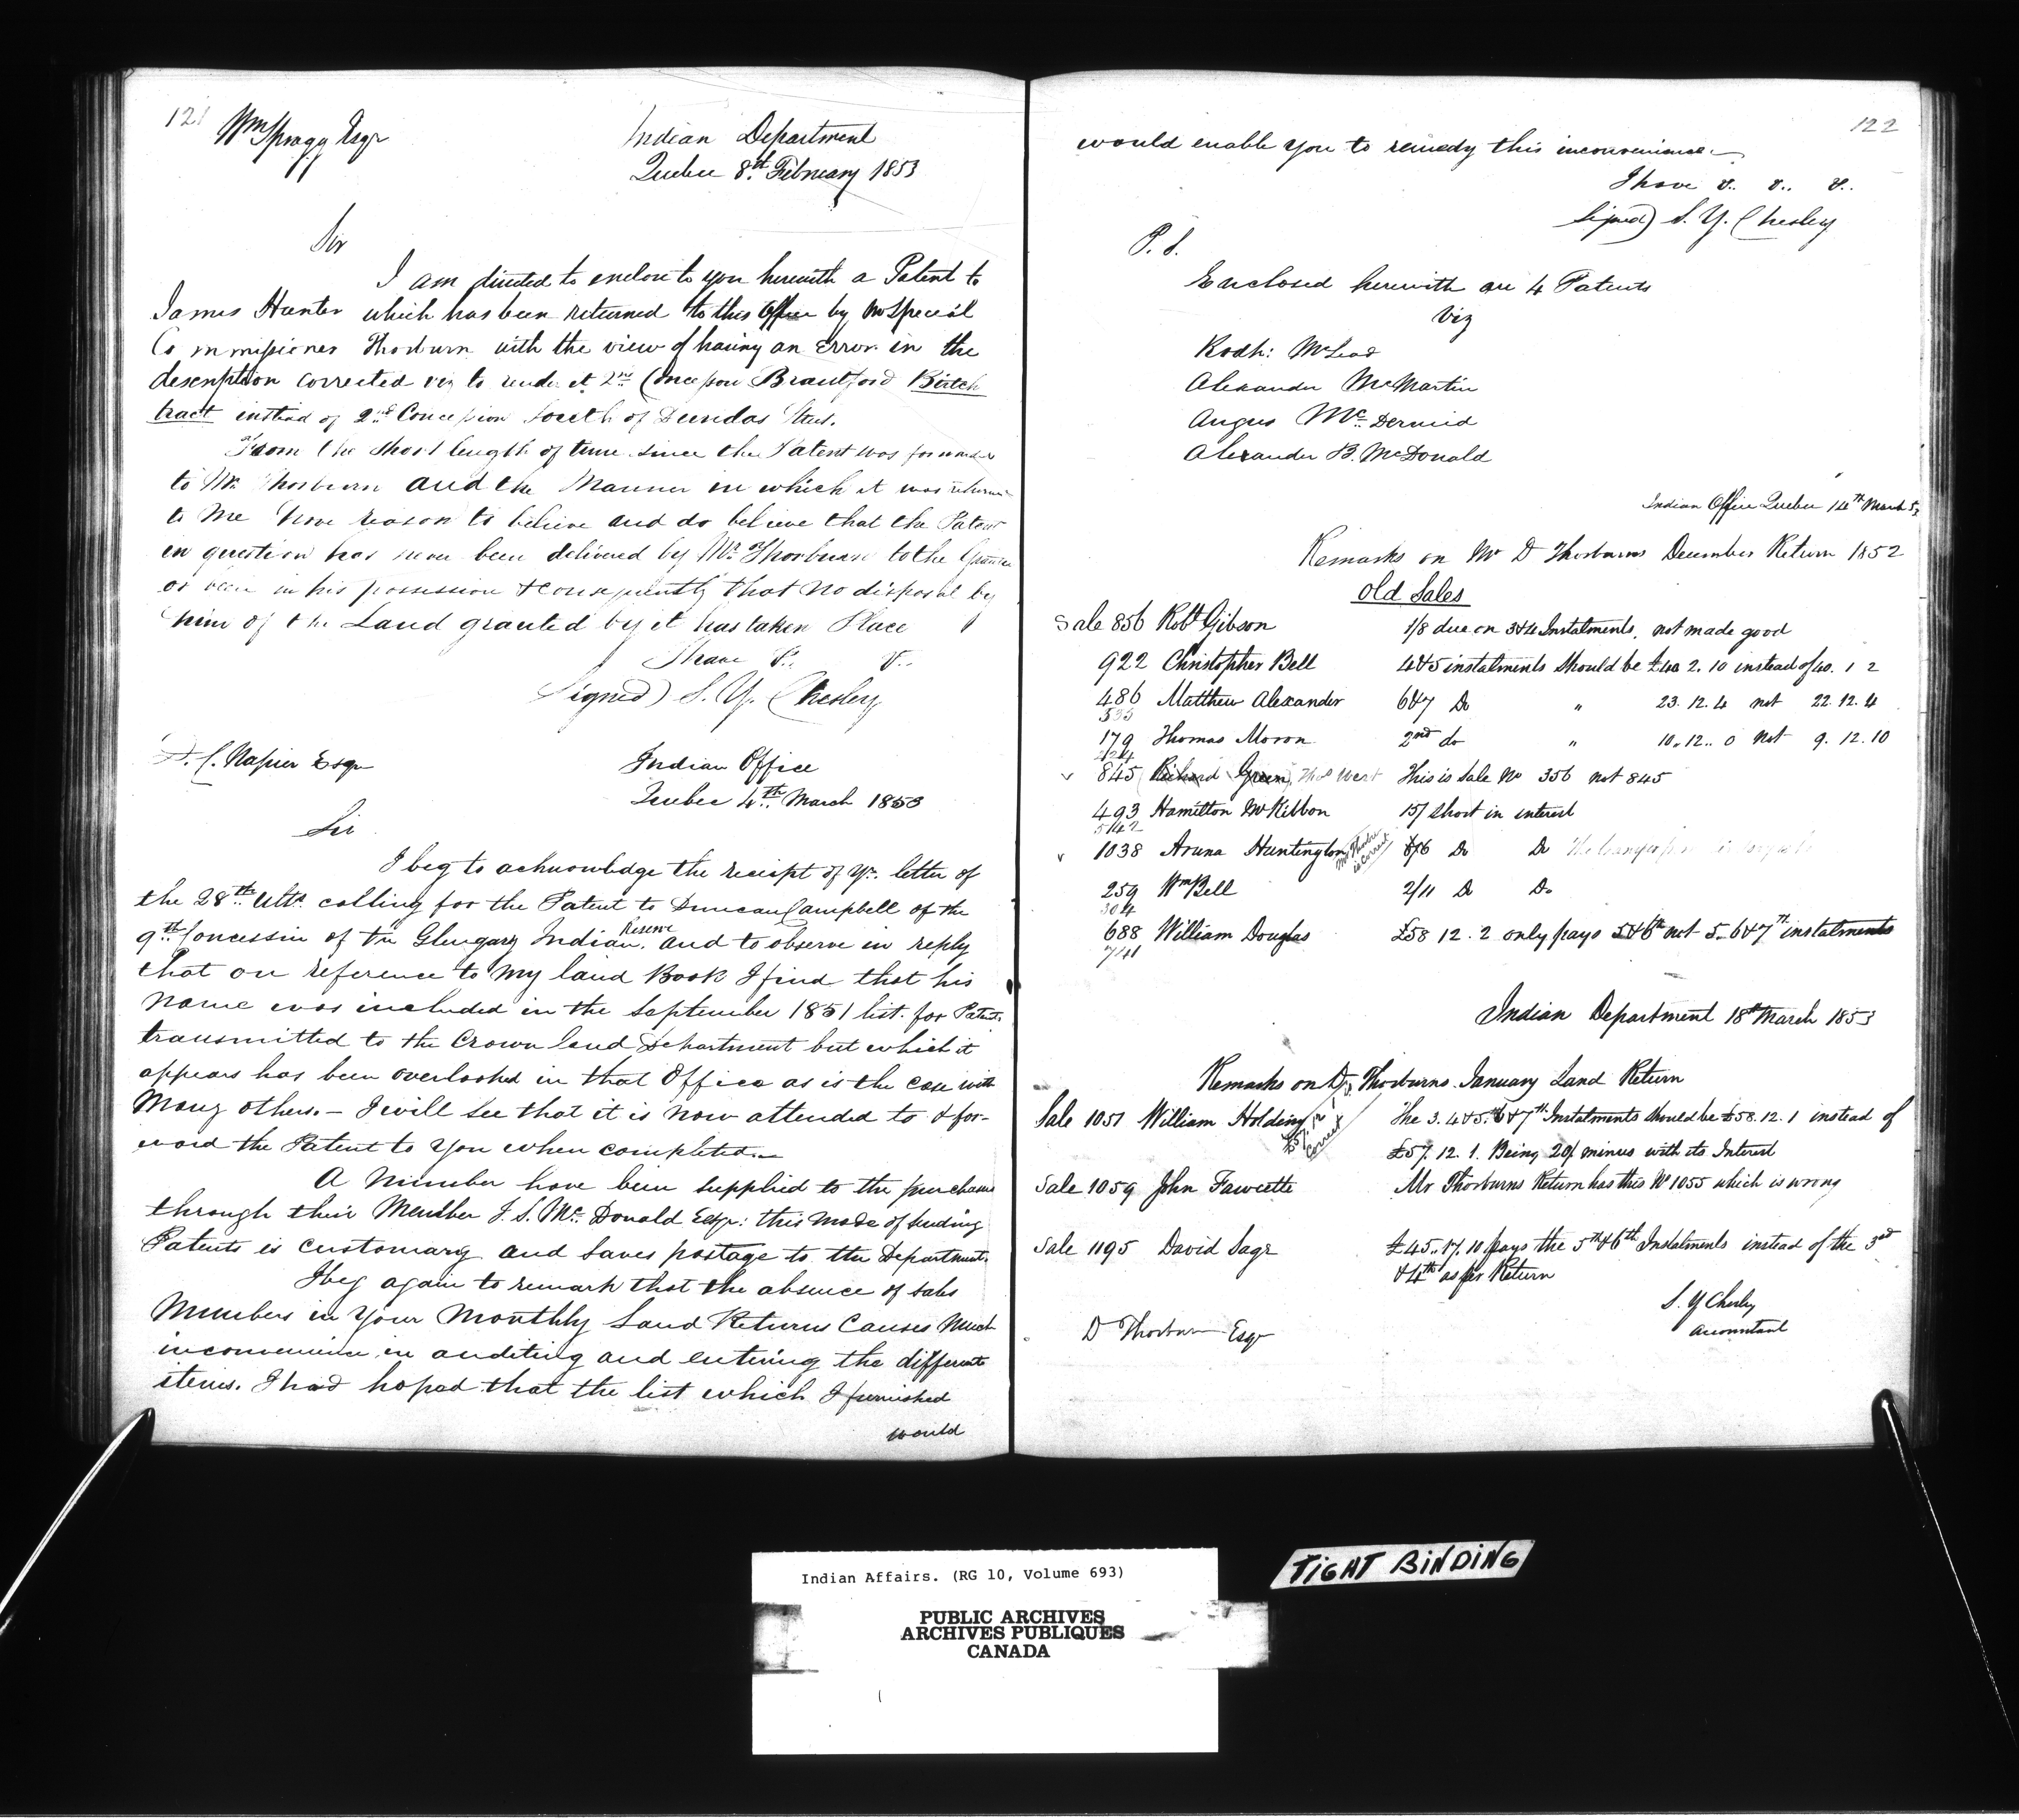 121
Wm Spragg Esqr
Indian Department
Quebec 8th February 1853
Sir
I am directed to enclose to you herewith a Patent to
James Hunter which has been returned to this Office by Mr Special
Commissioner Thorburn with the view of having an Error in the
description corrected viz to render it 2nd Concession Brantford Birtch
tract instead of 2nd Concession South of Dundas Street.
From the short length of time since the Patent was forwarded
to Mr Thorburn and the Manner in which it was returned
to me have reason to believe and do believe that the Patent
in question has never been delivered by Mr Thorburn to the Grantee
or been in his possession & consequently that no disposal by
him of the Land granted by it has taken Place
I have &.. &..
Signed) S. Y. Chesley
D. C. Napier Esqr
Indian Office
Quebec 4th March 1853
Sir
I beg to acknowledge the receipt of yr. letter of
the 28th Ulto. calling for the Patent to Duncan Campbell of the
9th Concession of the Glengary Indian Reserve and to observe in reply
that on reference to my land Book I find that his
name was included in the September 1851 list for Patents
transmitted to the Crown land Department but which it
appears has been overlooked in that Office as is the case with
Many others. – I will see that it is now attended to & for-
ward the Patent to you when completed. –
A Number have been supplied to the purchasers
through their Member J. S. Mc. Donald Esqr: this mode of sending
Patents is customary and saves postage to the Department.
I beg again to remark that the absence of sales
Numbers in your Monthly Land Returns Causes Much
inconvenience in auditing and entering the different
items. I had hoped that the list which I furnished
would
122
would enable you to remedy this inconvenience. –
I have &.. &.. &..
Signed) S. Y. Chesley
P. S.
Enclosed herewith are 4 Patents
Viz
Rodk: McLeod
Alexander McMartin
Angus Mc. Dermid
Alexander B. McDonald
Indian Office Quebec 14th March 53
Remarks on Mr D Thorburns December Return 1852
Old Sales
Sale 856 Robt Gibson 1/8 due on 3&4 Instalments, not made good
922 Christopher Bell 4&5 instalments should be £40 2. 10 instead of 40. 1 2
486 Matthew Alexander 6&7 Do " 23. 12. 4 not 22. 12. 4
535
179 Thomas Moron 2nd do " 10.. 12.. 0 not 9. 12. 10
224
845 Richard Green, Thos West This is Sale No 356 not 845
493 Hamilton McKibbon 15/ short in interest
542
1038 Aruna Huntington Mr Thorbn is correct 8/6 Do Do
259 Wm Bell 2/11 Do Do
304
688 William Douglas £58 12. 2 only pays 5&6th not 5. 6&7th instalments
741
Indian Department 18th March 1853
Remarks on D. Thorburns January Land Return
Sale 1051 William Holding £57. 12. 1 correct The 3. 4&5. 6&7th Instalments should be £58. 12. 1 instead of
£57. 12. 1. Being 20/ minus with its Interest
Sale 1059 John Fawcette Mr Thorburns Return has this No 1055 which is wrong
Sale 1195 David Sage £45.. 17. 10 pays the 5th & 6th Instalments instead of the 3rd
& 4th as per Return
S. Y Chesley
Accountant
D Thorburn Esqr
Indian Affairs. (RG 10, Volume 693)
PUBLIC ARCHIVES
ARCHIVES PUBLIQUES
CANADA
TIGHT BINDING